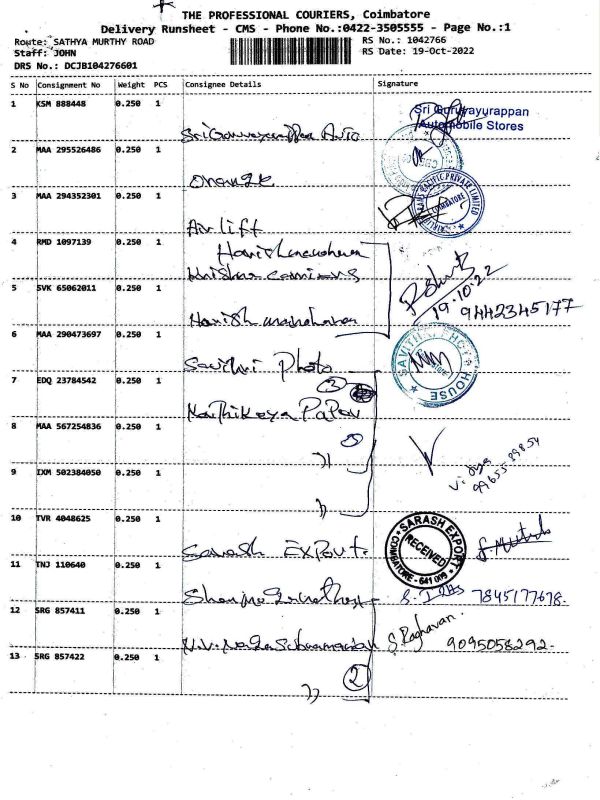 THE PROFESSIONAL COURIERS, Coimbatore
Delivery Runsheet - CMS - Phone No.:0422-3505555 - Page No.:1
Route: SATHYA MURTHY ROAD
RS No.: 1042766
Staff: JOHN
RS Date: 19-Oct-2022
DRS No.: DCJB104276601
S No Consignment No Weight PCS Consignee Details Signature
1 KSM 888448 0.250 1
Sri Guruvayurappan
Automobile Stores
Auto
2 MAA 295526486 0.250 1
Orange
3 MAA 294352301 0.250 1
PACIFIC PRIVATE LIMITED
COIMBATORE
Air lift
4 RMD 1097139 0.250 1
5 SVK 65062011 0.250 1
19.10.22
9442345177
Harish manoharan
6 MAA 290473697 0.250 1
SAVITHRI PHOTO HOUSE
Savithri Photo
7 EDQ 23784542 0.250 1
3
Karthikeya
8 MAA 567254836 0.250 1
Vidya
9965589854
9 IXM 502384050 0.250 1
10 TVR 4048625 0.250 1
SARASH EXPORT
RECEIVED
COIMBATORE - 641 009
Sarash Export
11 TNJ 110640 0.250 1
7845177678.
12 SRG 857411 0.250 1
S. Raghavan.
9095058292.
13 SRG 857422 0.250 1
2